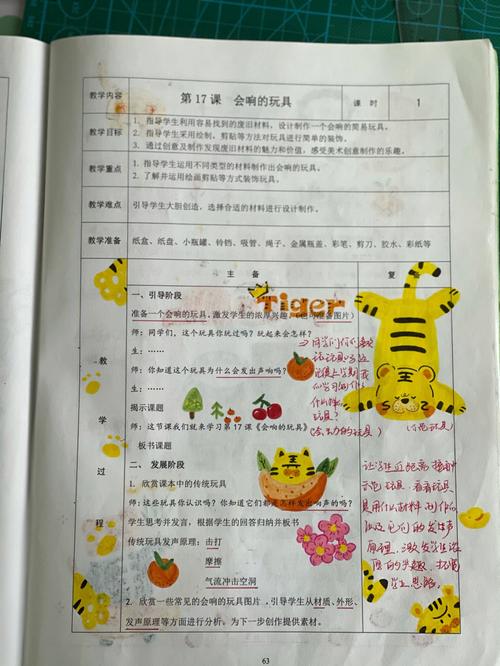 教学内容 第17课 会响的玩具 课时 1
教学目标
1. 指导学生利用容易找到的废旧材料，设计制作一个会响的简易玩具。
2. 指导学生采用绘制、剪贴等方法对玩具进行简单的装饰。
3. 通过创意及制作发现废旧材料的魅力和价值，感受美术创意制作的乐趣。
教学重点
1. 指导学生运用不同类型的材料制作出会响的玩具。
2. 了解并运用绘画剪贴等方式装饰玩具。
教学难点 引导学生大胆创造，选择合适的材料进行设计制作。
教学准备 纸盒、纸盘、小瓶罐、铃铛、吸管、绳子、金属瓶盖、彩笔、剪刀、胶水、彩纸等
主 备 复
教学过程
一、引导阶段
Tiger
准备一个会响的玩具，激发学生的浓厚兴趣。（也可准备图片）
师：同学们，这个玩具你玩过吗？玩起来会怎样？
生：……
师：你知道这个玩具为什么会发出声响吗？
生：……
揭示课题
师：这节课我们就来学习第17课《会响的玩具》
板书课题
二、发展阶段
1. 欣赏课本中的传统玩具
师：这些玩具你认识吗？你知道它们都是怎样发出声响的吗？
学生思考并发言，根据学生的回答归纳并板书
传统玩具发声原理：击打
摩擦
气流冲击空洞
2. 欣赏一些常见的会响的玩具图片，引导学生从材质、外形、
发声原理等方面进行分析，为下一步创作提供素材。
玩具？
让学生近距离接触
玩具，看看玩具
是用什么材料制作的
以及它们的发声
原理，激发学生浓
厚的兴趣，
63